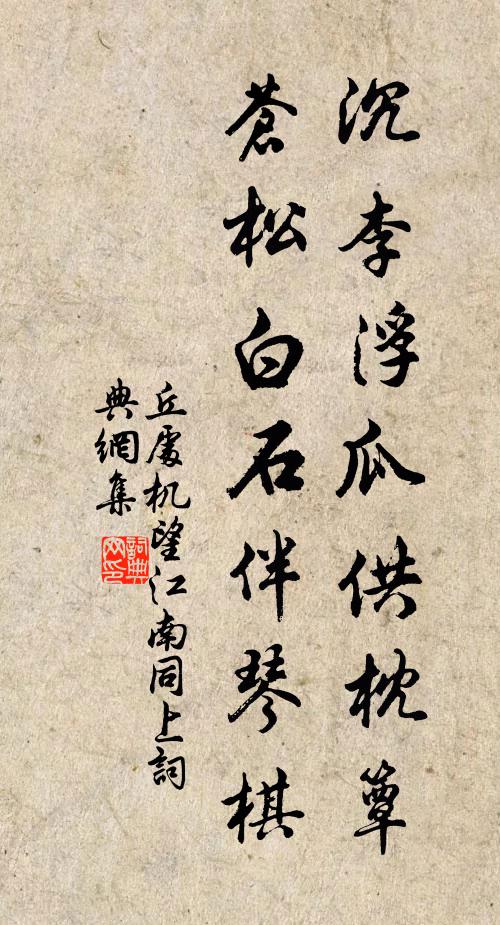 沉李浮瓜供枕簟
蒼松白石伴琴棋
丘處机望江南同上詞
典網集
詞典網印